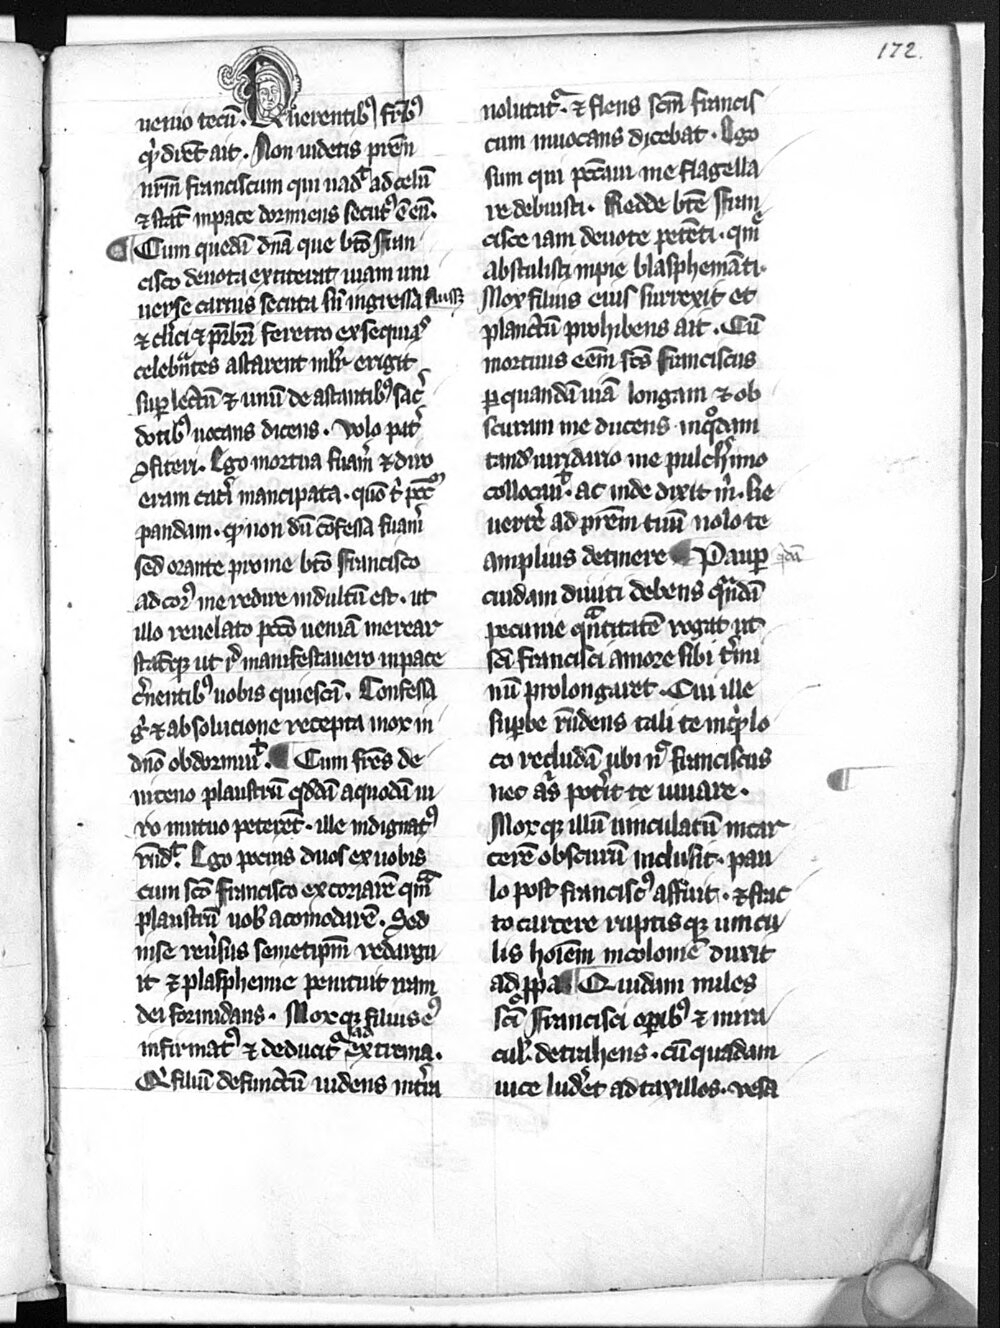 172.
uenio tecū. Querentibꝰ fr̄ibꝰ
qͥ diceret ait. Non uidetis prēm
nr̄m franciscum qui uadit ad celū
⁊ stat̄ inpace dormiens secutꝰ ē eū.
Cum quedā dn̄a que bt̄o fran
cisco deuota extiterat uiam uni
uerse carnis secuta sū ingressa fuiss;
⁊ clīci ⁊ pr̄bri feretro exsequias
celebrātes astarent mlr̄ erigit
suꝑ lectū ⁊ unū de astantibꝰ sac̄
dotibꝰ uocans dicens. Volo pat̄
ꝯfiteri. Ego mortua fuam̄ ⁊ diro
eram carc̄i mancipata. quō t̄ pctō
pandam. qͥ non dū cōfessa fuam̄
sed orante pro me bt̄o francisco
ad corꝰ me redire indultū est. ut
illo reuelato pctō ueniā merear
statīqꝫ ut t̄ manifestauero inpace
c̄nentibꝰ uobis quiescā. Confessa
gͥ ⁊ absolucione recepta mox in
dn̄o obdormiuit. Cum frēs de
uiceno plaustrū qͥddā a quodā ui
ro mutuo peterēt. ille indignatꝰ
rn̄dit. Ego pocius duos ex uobis
cum scō francisco excoriarē qm̄
plaustrū uob̄ acomodarē. Sed
in se reu̓sus semetip̄m redargu
it ⁊ plasphemie penituit iram
dei formidans. Moxqꝫ filius eꝰ
infirmatꝰ ⁊ deducitᷣ ad extrema.
Qͥ filiū defunctū uidens in tr̄a
uolutatᷣ. ⁊ flens scm̄ francis
cum inuocans dicebat. Ego
sum qui peccaui me flagella
re debuisti. Redde bt̄e fran
cisce iam deuote petēti. qm̄
abstulisti impie blasphemāti.
Mox filius eius surrexit et
planctū prohibens ait. Cū
mortuus eēm scs̄ franciscus
ꝑ quandā uiā longam ⁊ ob
scuram me ducens in qͦdam
tandē uiridario me pulcherrimo
collocauit. ac inde dixit m̄. Re
uertē ad prēm tuū nolo te
amplius detinere Pauꝑ qͥdā
cuidam diuiti debens qͣndā
pecunie qͣntitatē rogat ut
sci francisci amore sibi t̄mi
nū prolongaret. Cui ille
superbe rn̄dens tali te inqͥ lo
co recludā ubi nͨ franciscus
nec aliꝰ pot̄it te iuuare.
Moxqꝫ illū uinculatū in car
cerē obscurū inclusit. pau
lo post franciscꝰ affuit. ⁊ frac
to carcere ruptisqꝫ uincu
lis hoīem incolomē duxit
ad ꝓpͥa Quidam miles
sci francisci opībꝰ ⁊ mira
cul̄ detrahens. cū quadam
uice luderet ad taxillos. uesa